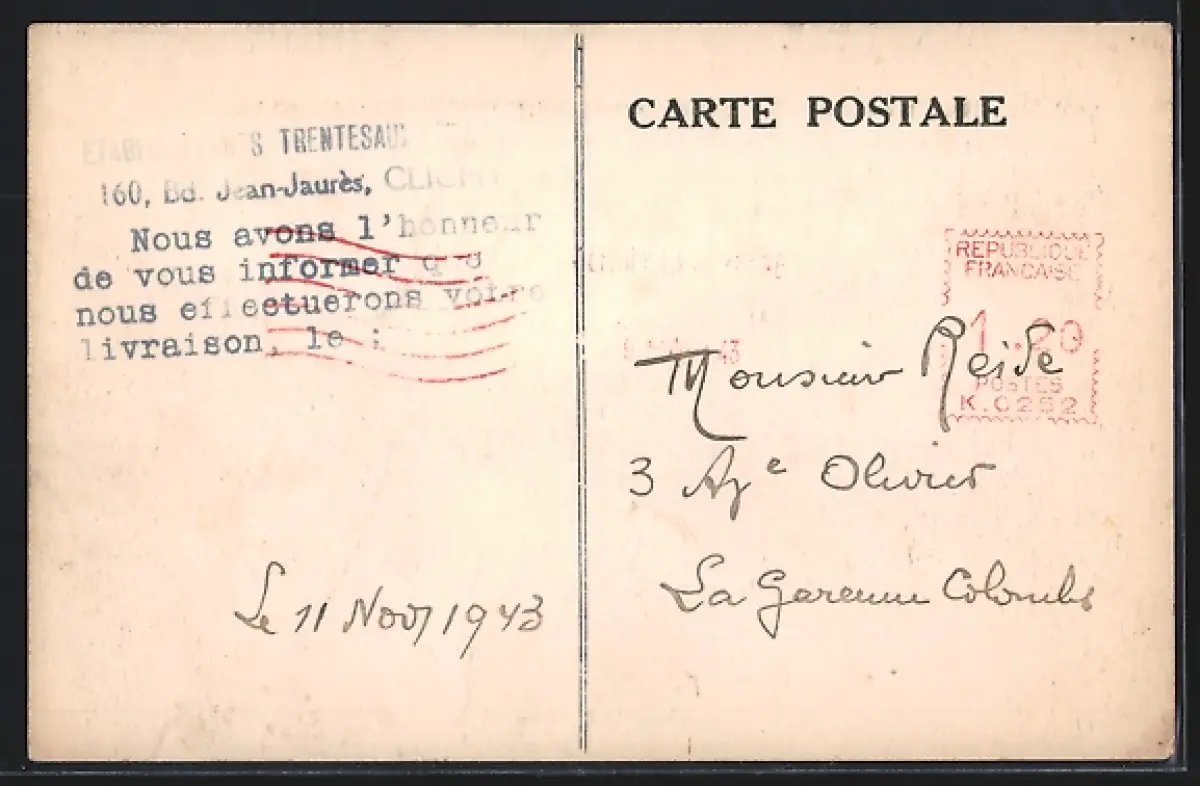 CARTE POSTALE
TRENTESAUX
160, Bd. Jean-Jaurès, CLICHY
Nous avons l'honneur
de vous informer que
nous effectuerons votre
livraison, le :
Le 11 Nov 1943
REPUBLIQUE
FRANCAISE
1.20
POSTES
K.0252
Monsieur Reide
3 Olivier
La Garenne Colombes